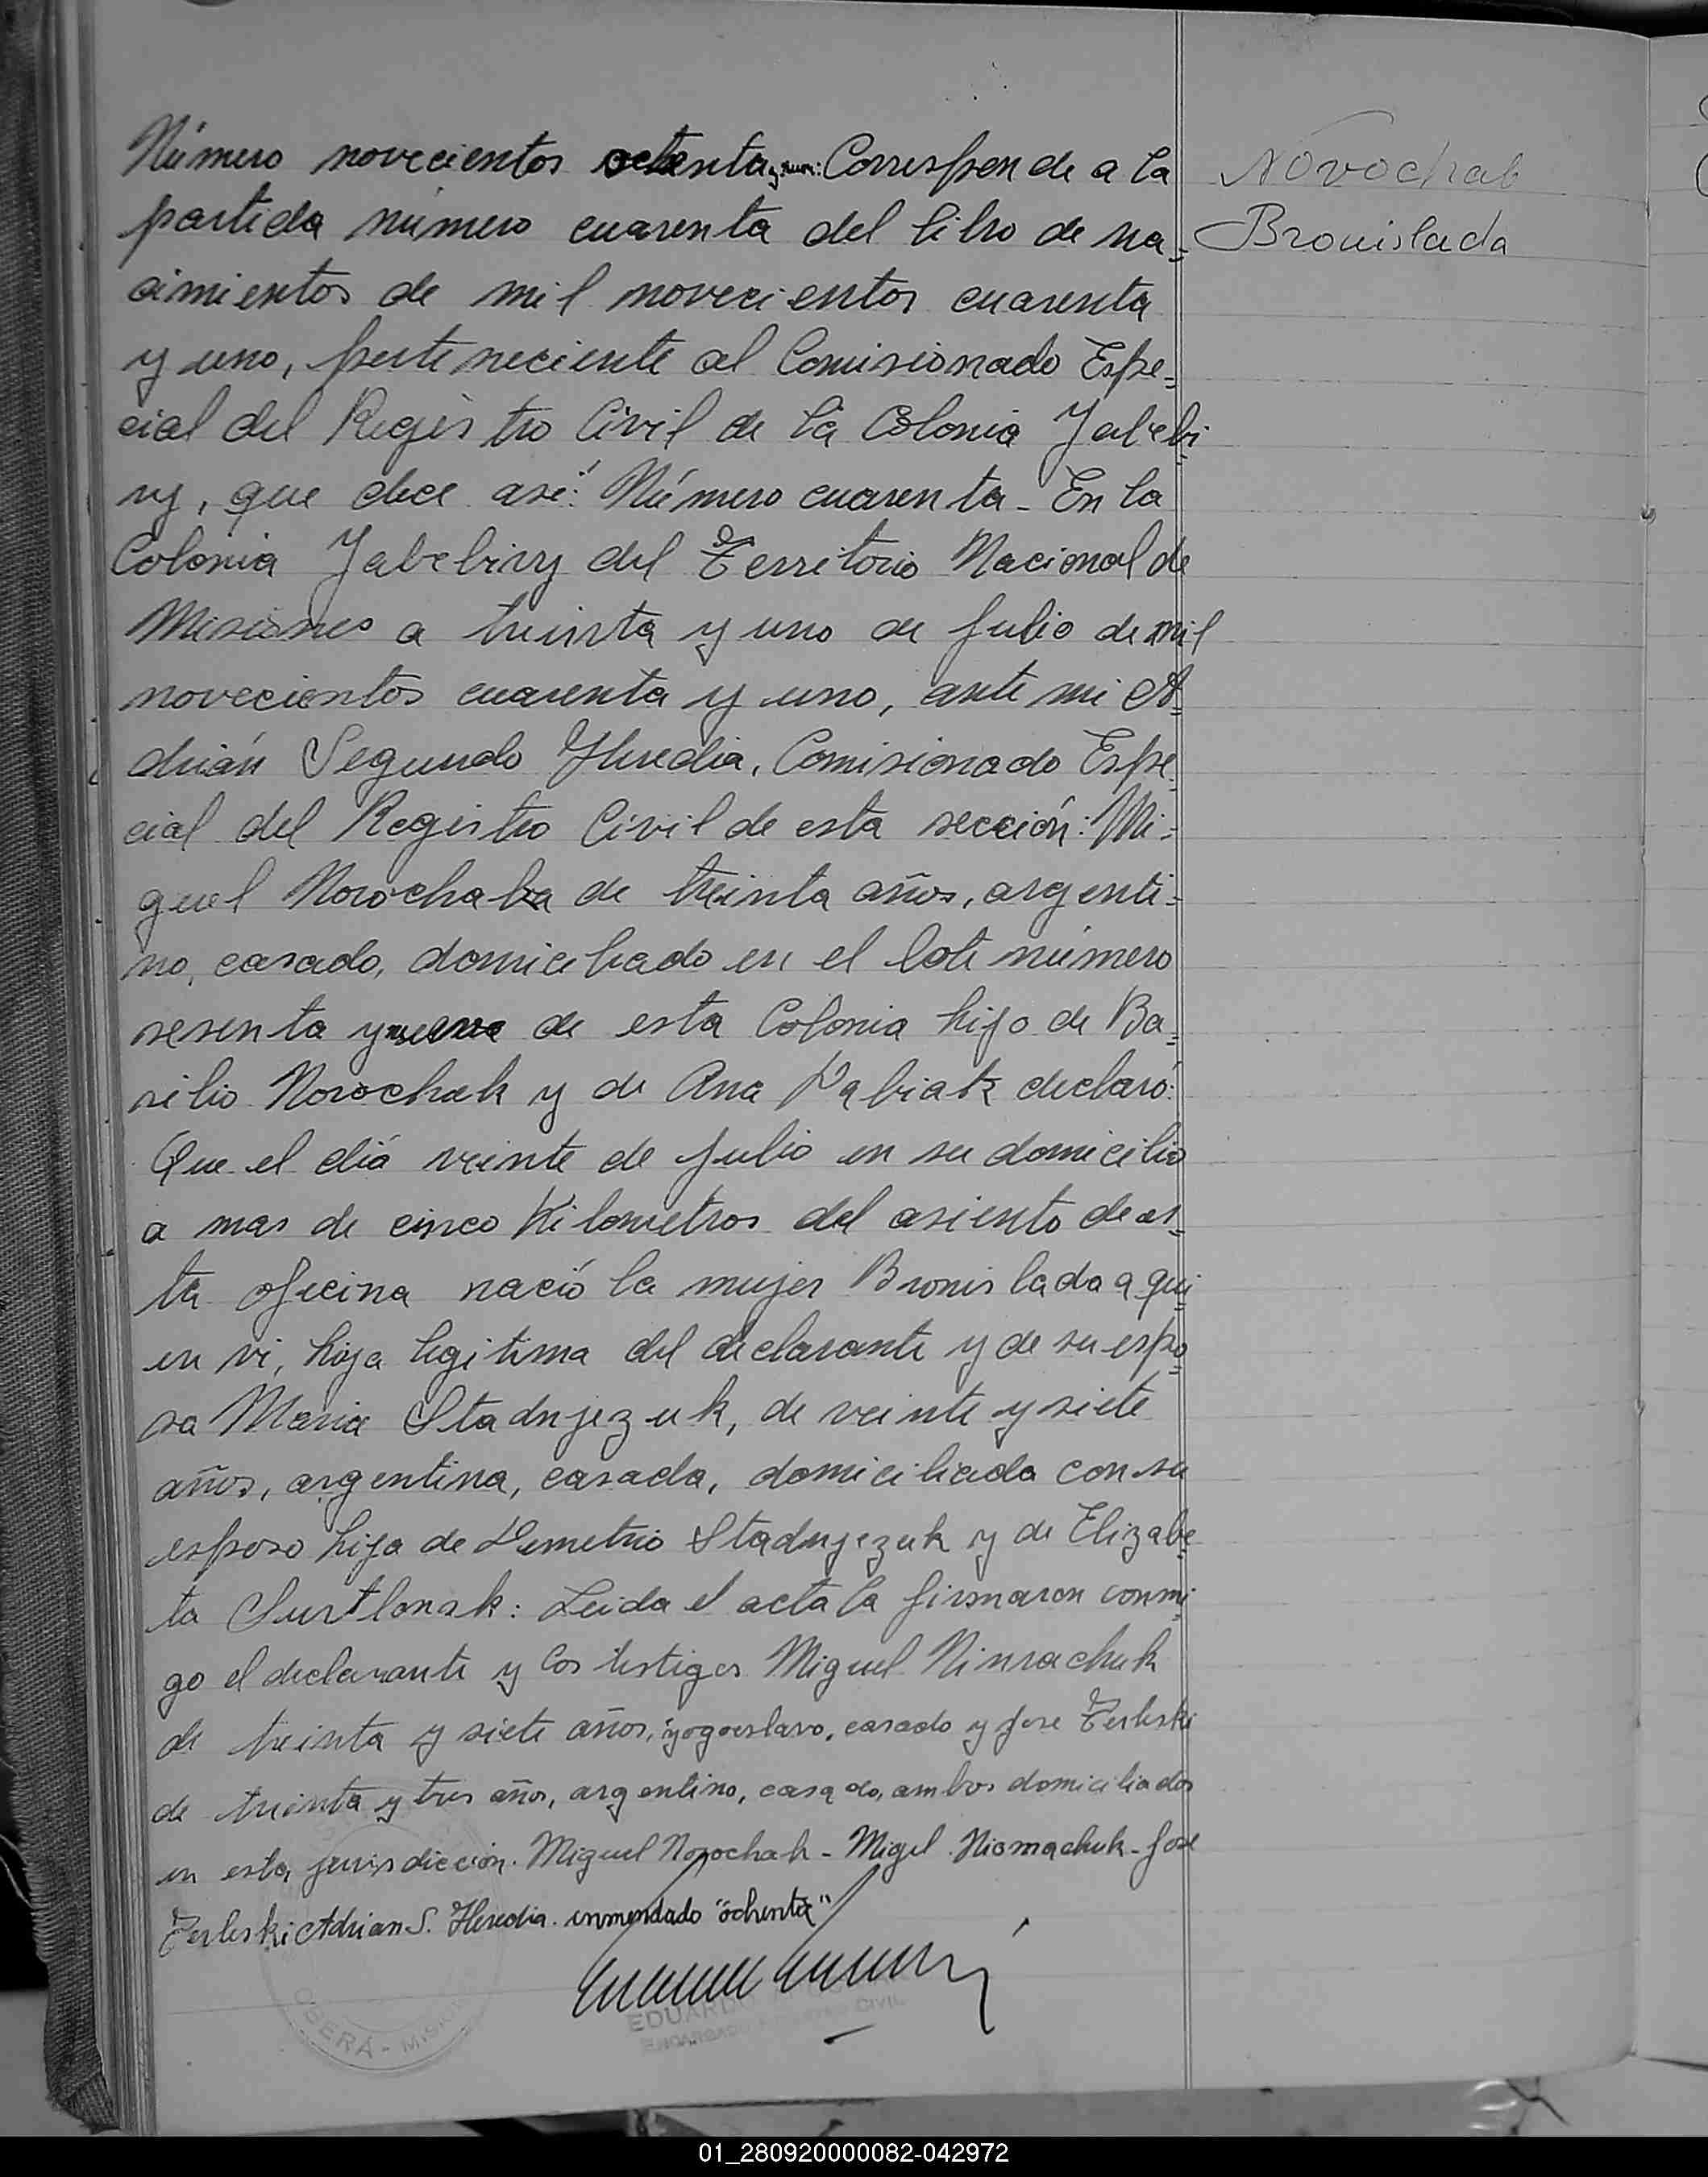 Número novecientos ochenta y uno: Corresponde a la
partida número cuarenta del libro de na=
cimientos de mil novecientos cuarenta
y uno, perteneciente al Comisionado Espe=
cial del Registro Civil de la Colonia Yabebi=
ry, que dice así: Número cuarenta - En la
Colonia Yabebiry del Territorio Nacional de
Misiones a treinta y uno de Julio de mil
novecientos cuarenta y uno, ante mi A=
drián Segundo Heredia, Comisionado Espe=
cial del Registro Civil de esta sección: Mi=
guel Novochak de treinta años, argenti=
no, casado, domiciliado en el lote número
sesenta y nueve de esta Colonia hijo de Ba=
silio Novochak y de Ana Pabiak declaró:
Que el día veinte de Julio en su domicilio
a mas de cinco Kilometros del asiento de es=
ta oficina nació la mujer Bronislada a qui=
en vi, hija legitima del declarante y de su espo=
sa Maria Stadnjezuk, de veinte y siete
años, argentina, casada, domiciliada con su
esposo hija de Demetrio Stadnjezuk y de Elizabe=
ta Surtlonsk: Leida el acta la firmaron conmi=
go el declarante y los testigos Miguel
de treinta y siete años, yogoeslavo, casado y Jose Terleski
de treinta y tres años, argentino, casado, ambos domiciliados
en esta jurisdicción. Miguel Novochak - Migel Niomachuk - Jose
Terleski Adrian S. Heredia. enmendado "ochenta"
Novochak
Bronislada
OBERÁ - MISIONES
EDUARDO
ENCARGADO CIVIL
01_280920000082-042972